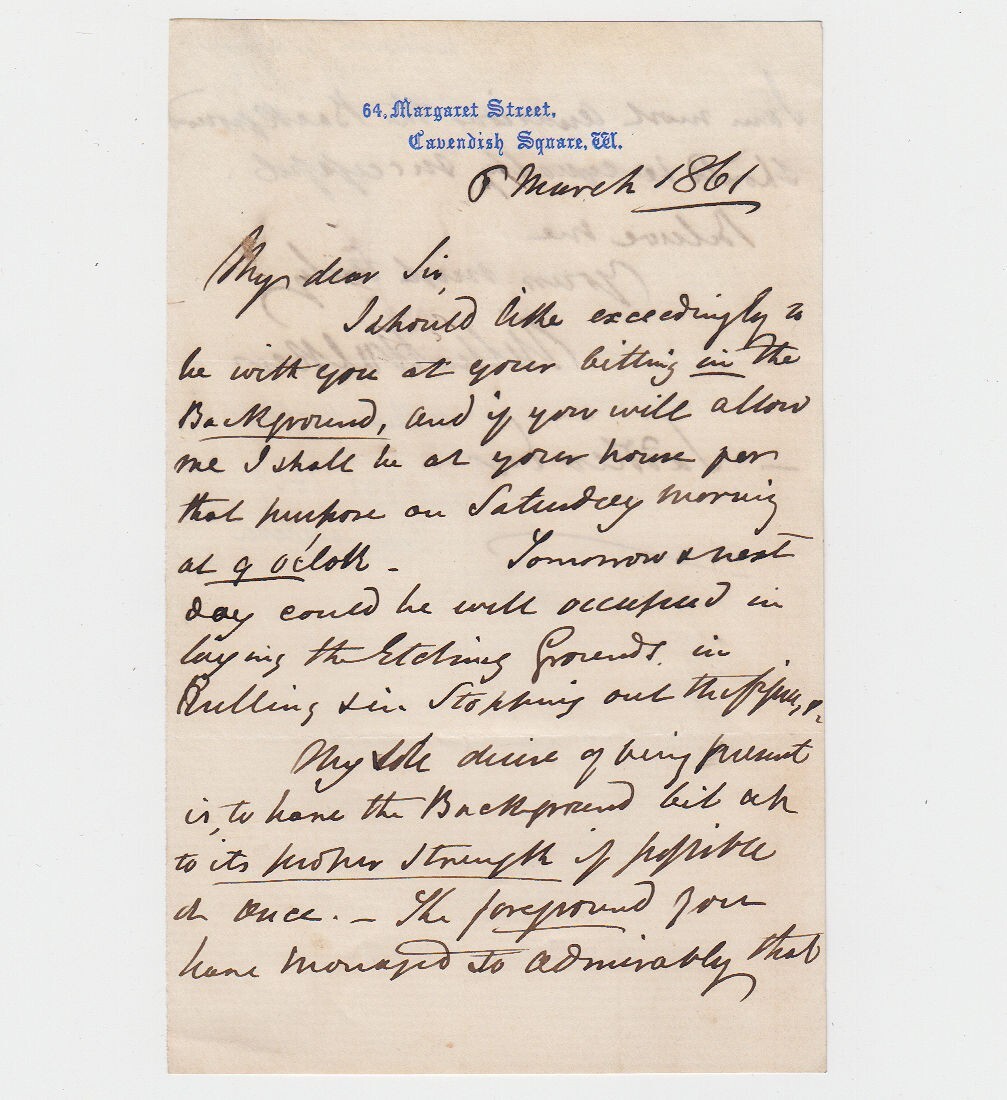 64, Margaret Street,
Cavendish Square, W.
6 March 1861
My dear Sir,
I should like exceedingly to
be with you at your bitting in the
Background, and if you will allow
me I shall be at your house for
that purpose on Saturday morning
at 9 o'clok - Tomorrow & next
day could be well occupied in
laying the Etching Grounds in
Rulling & in Stopping out the figures,
My sole desire of being present
is, to have the Background bit up
to its proper strength if possible
at once. - The foreground you
have managed so admirably that